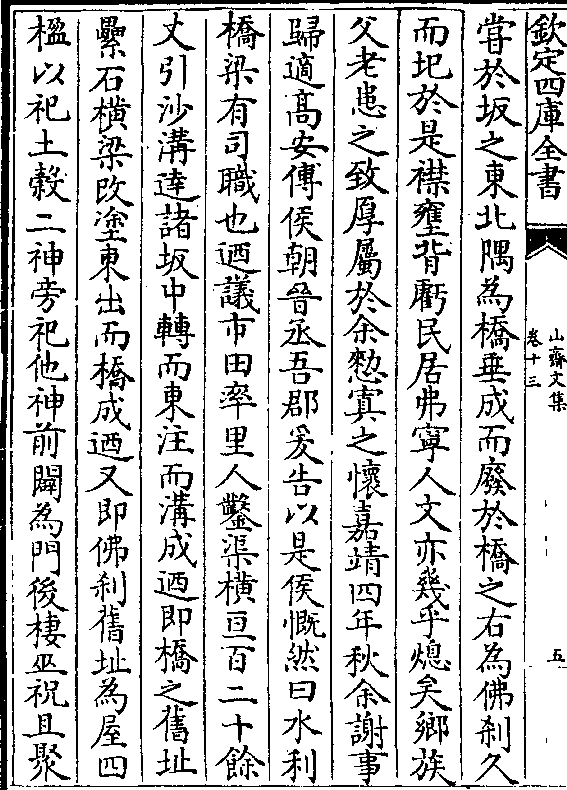 欽定四庫全書
山齋文集
卷十三
五
嘗於坂之東北隅為橋垂成而廢於橋之右為佛刹久
而圯於是襟壅背虧民居弗寧人文亦幾乎熄矣鄉族
父老患之致厚屬於余懃寘之懷嘉靖四年秋余謝事
歸適高安傅侯朝晉丞吾郡爰告以是侯慨然曰水利
橋梁有司職也迺議市田率里人鑿渠橫亘百二十餘
丈引沙溝達諸坂中轉而東注而溝成迺即橋之舊址
纍石橫梁改塗東出而橋成迺又即佛刹舊址為屋四
楹以祀土榖二神旁祀他神前闢為門後棲巫祝且聚